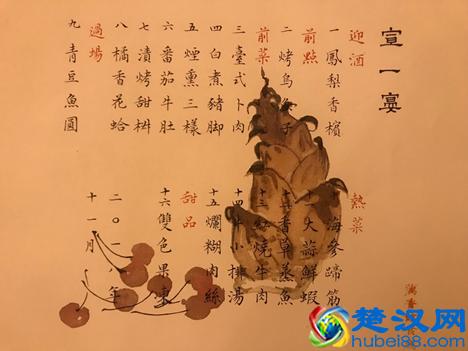 宣一宴
迎酒
一鳳梨香檳
前點
二烤烏魚子
前菜
三臺式卜肉
四白煮豬脚
五煙熏三樣
六番茄牛肚
七漬烤甜椒
八橘香花蛤
過場
九青豆魚圓
熱菜
海參蹄筋
十一大蒜鮮蝦
十二香草蒸魚
十三紅燒牛肉
十四小排湯
十五爛糊肉絲
甜品
十六雙色果凍
二〇一八年
十一月
楚汉网
hubei88.com